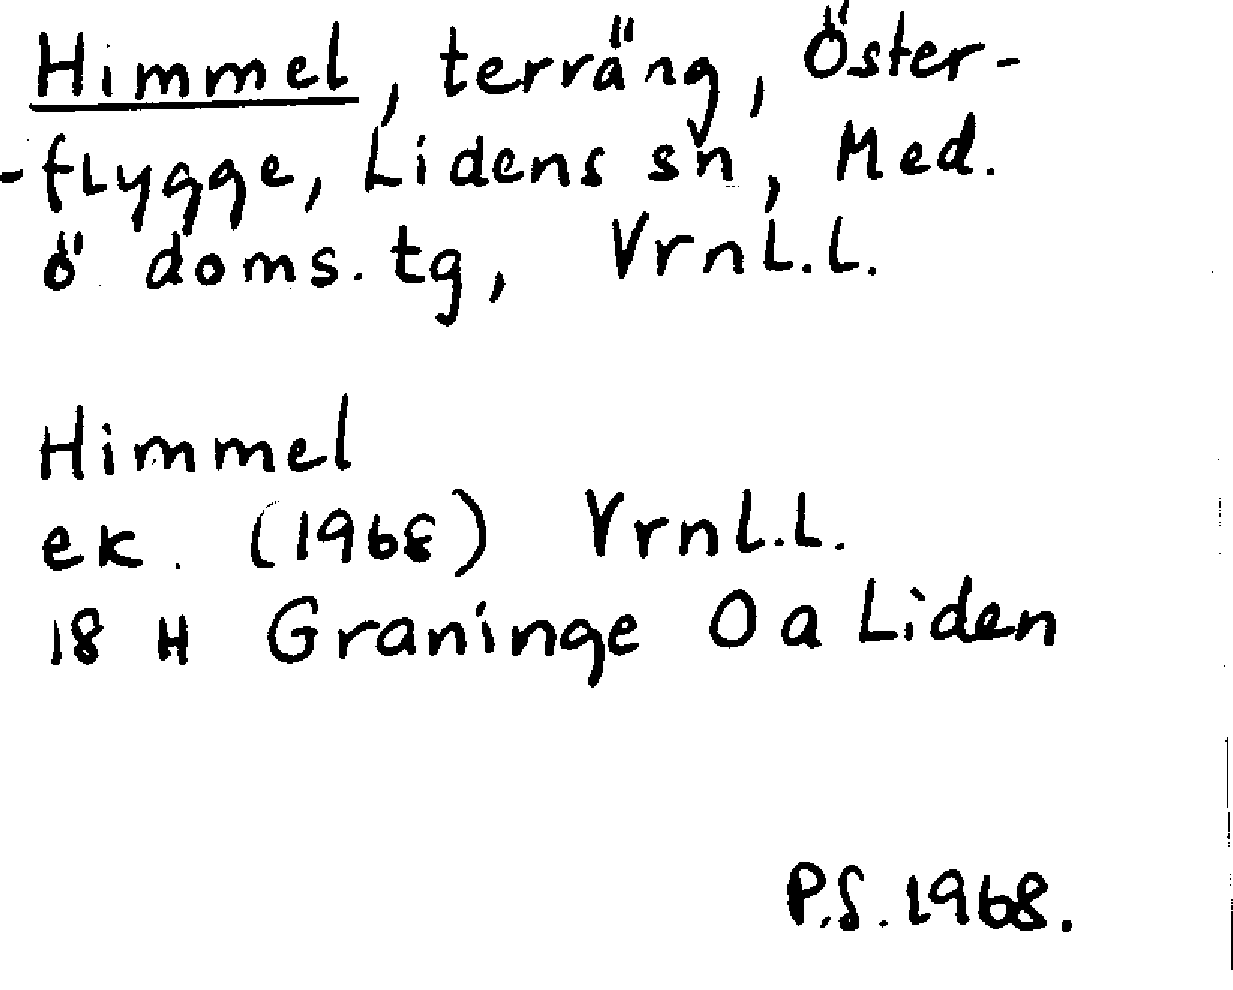 Himmel, terräng, Öster-
-flygge, Lidens sn, Med.
ö doms.tg, Vrnl.l.
Himmel
ek. (1968) Vrnl.l.
18 H Graninge 0a Liden
P.S. 1968.